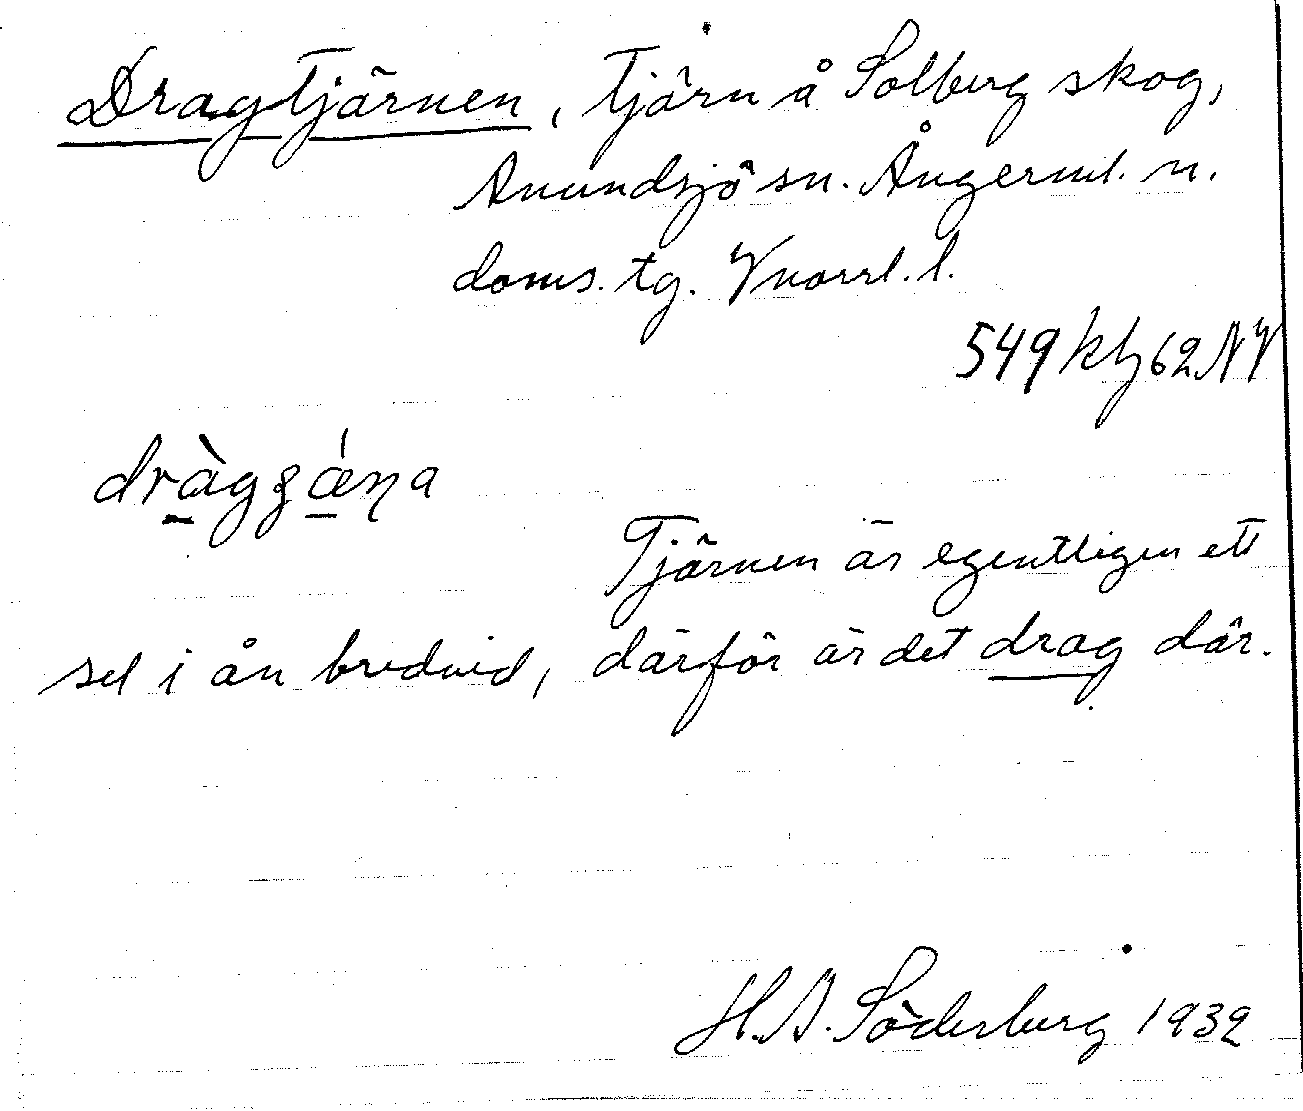 Dragtjärnen, tjärn å Solberg skog,
Anundsjö sn. Ångerml. n.
doms. tg. Vnorrl. l.
549 kbj 62 NV
dràgʒǽn̨a
Tjärnen är egentligen ett
sel i ån bredvid, därför är det drag där.
H.A. Söderberg 1932